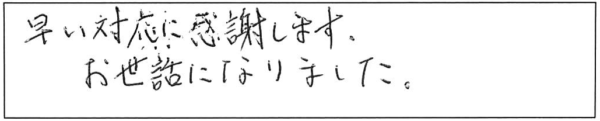 早い対応に感謝します。
お世話になりました。